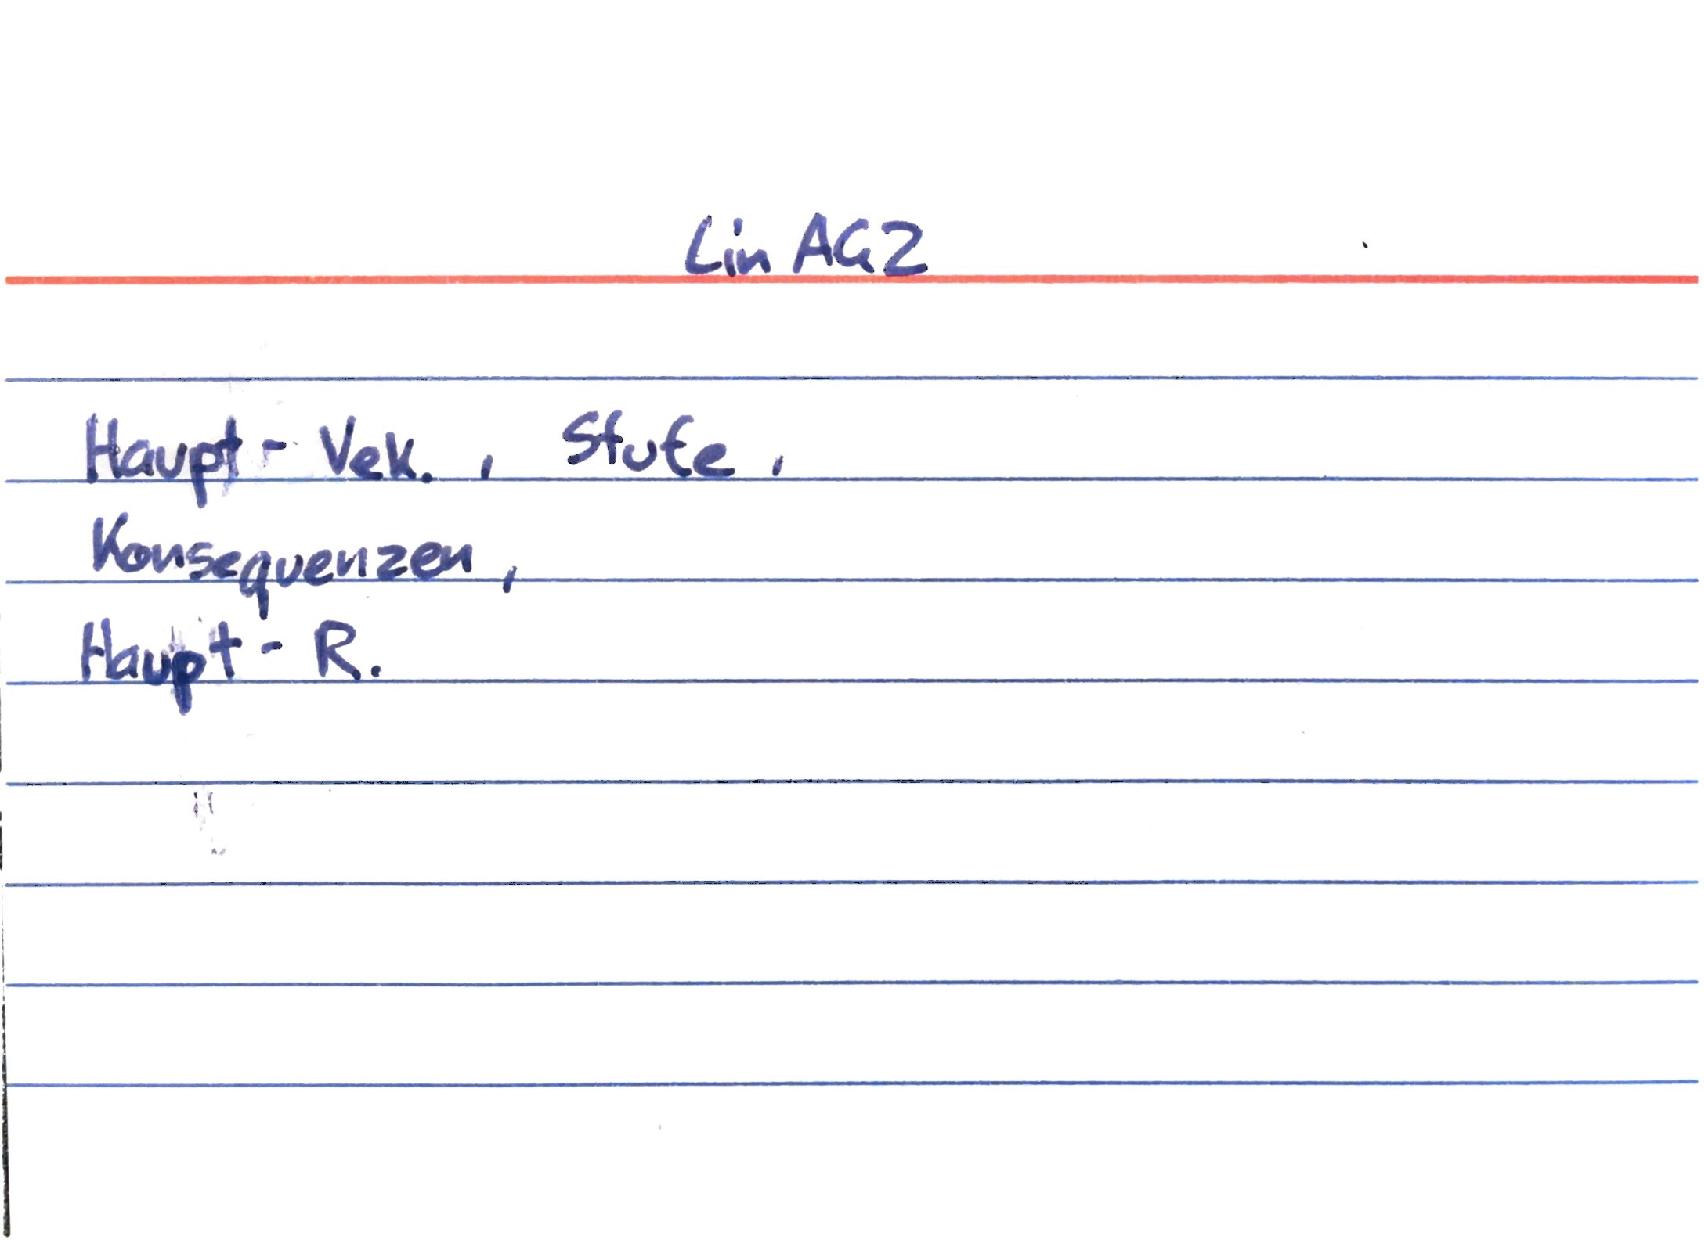 Lin AG2
Haupt- Vek. , Stufe ,
Konsequenzen ,
Haupt- R.